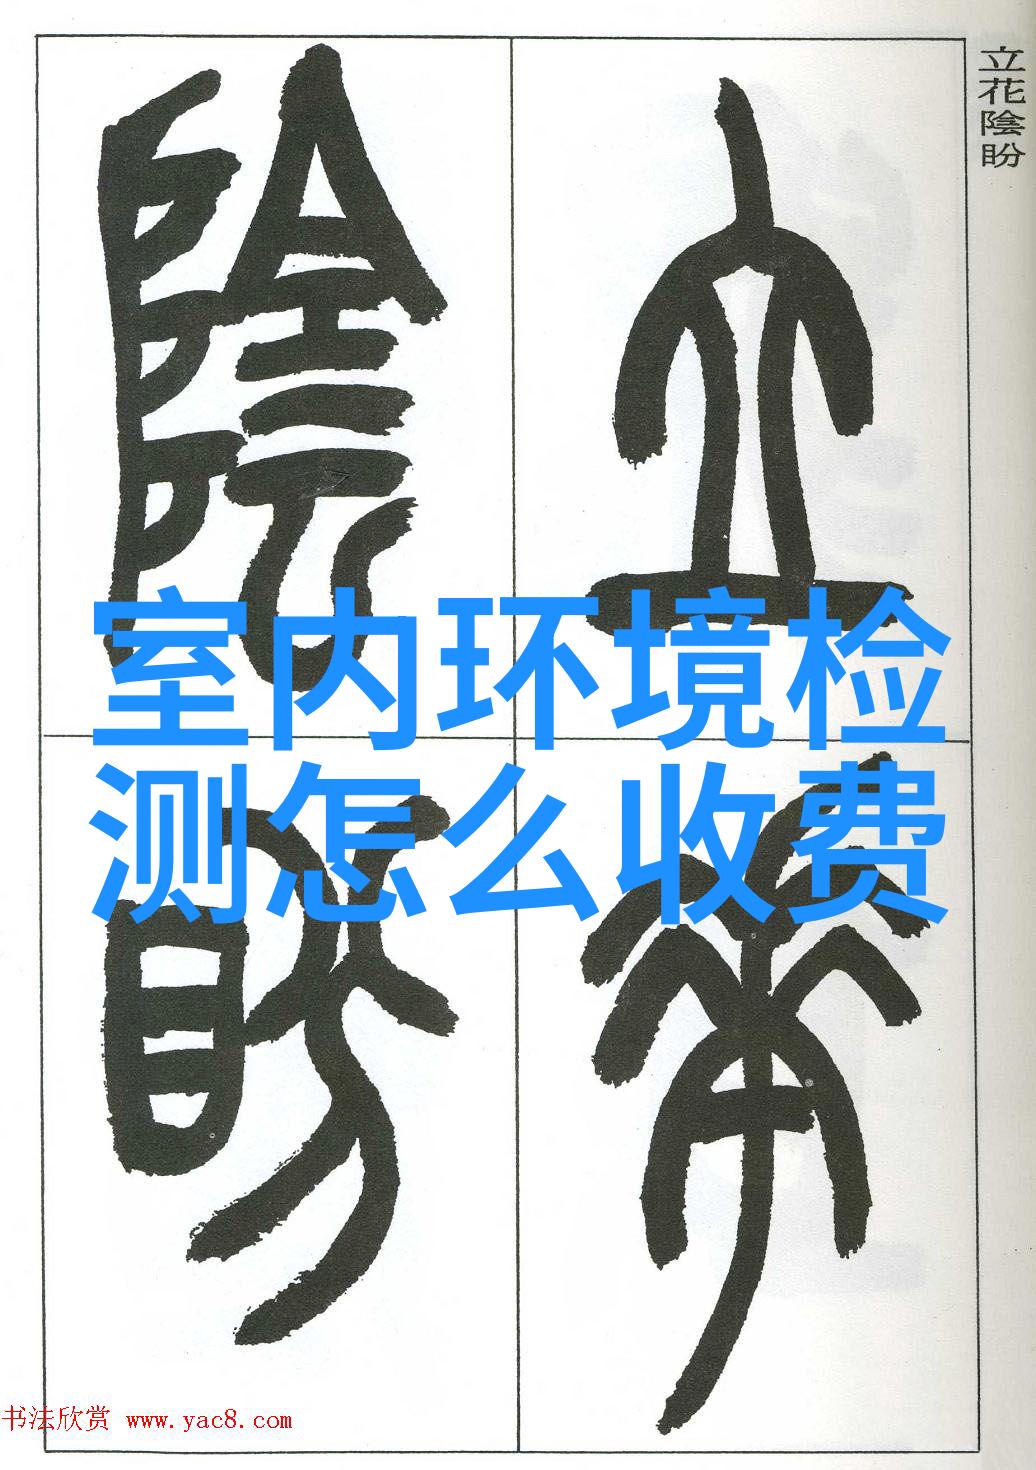 立花陰盼
立
花
陰
盼
室内环境检
测怎么收费
书法欣赏 www.yac8.com